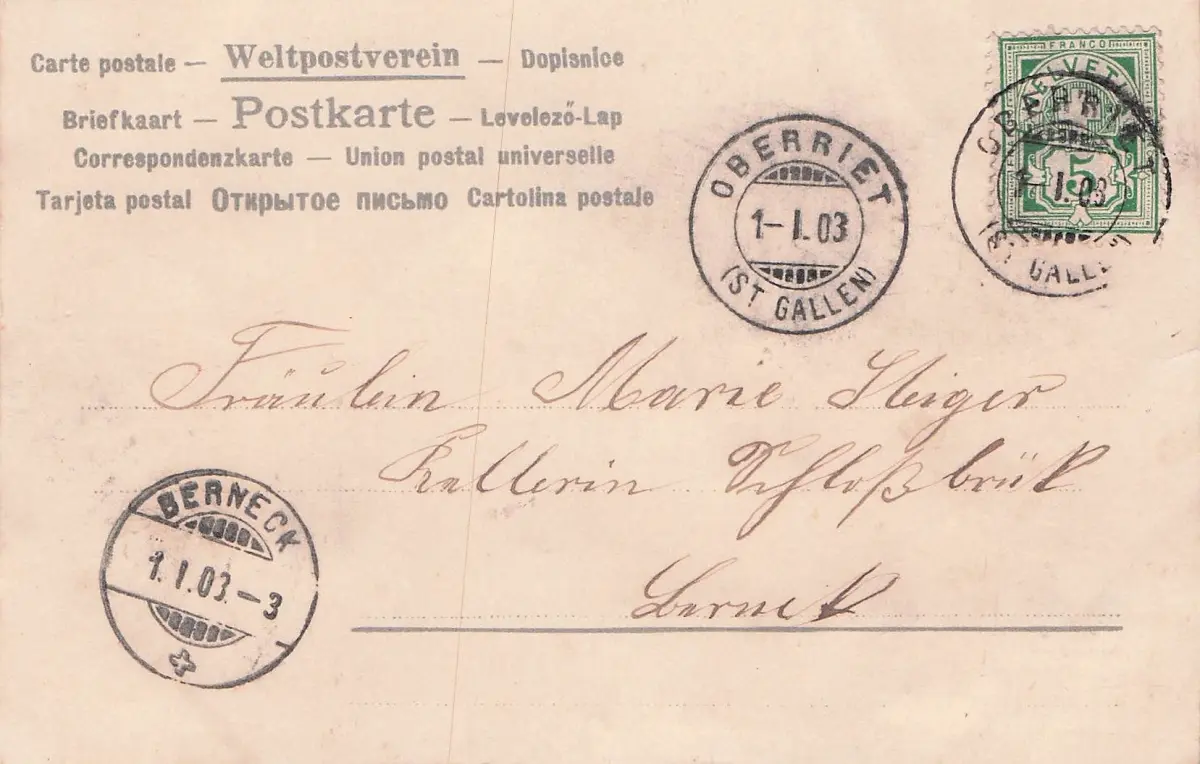 Carte postale — Weltpostverein — Dopisnice
Briefkaart — Postkarte — Levelező-Lap
Correspondenzkarte — Union postal universelle
Tarjeta postal Открытое письмо Cartolina postale
FRANCO
HELVETIA
5
OBERRIET
1-I.03
(ST GALLEN)
OBERRIET
1-I.03
(ST GALLEN)
Fräulein Marie Steiger
Kellerin Schloßbrük
Bernek
BERNECK
1.I.03.-3